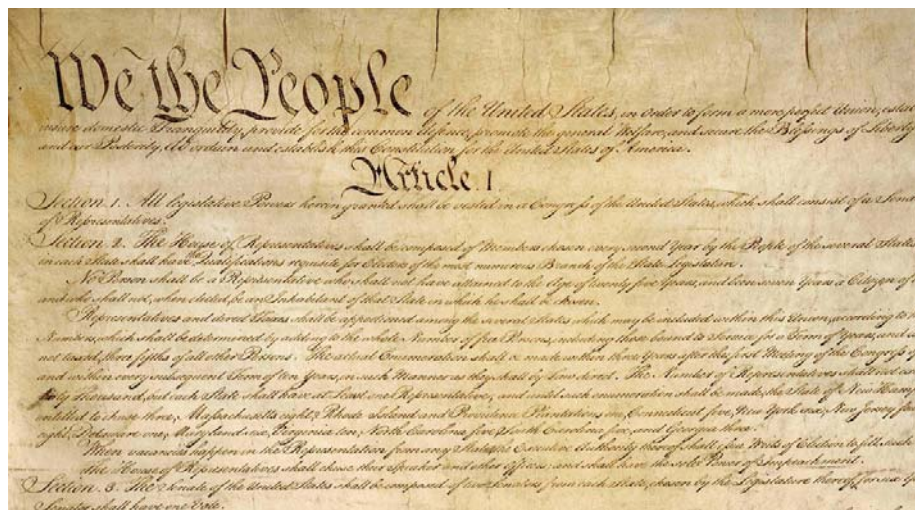 We the People of the United States, in Order to form a more perfect Union,
insure domestic Tranquility, provide for the common defence, promote the general Welfare, and secure the Blessings of Liberty
and our Posterity, do ordain and establish this Constitution for the United States of America.
Article. I.
Section. 1. All legislative Powers herein granted shall be vested in a Congress of the United States, which shall consist of a
of Representatives.
Section. 2. The House of Representatives shall be composed of Members chosen every second Year by the People of the several States,
in each State shall have the Qualifications requisite for Electors of the most numerous Branch of the State Legislature.
No Person shall be a Representative who shall not have attained to the Age of twenty five Years, and been seven Years a Citizen of
and who shall not, when elected, be an Inhabitant of that State in which he shall be chosen.
Representatives and direct Taxes shall be apportioned among the several States which may be included within this Union, according to
Numbers, which shall be determined by adding to the whole Number of free Persons, including those bound to Service for a Term of Years, and
not taxed, three fifths of all other Persons. The actual Enumeration shall be made within three Years after the first Meeting of the Congress
and within every subsequent Term of ten Years, in such Manner as they shall by Law direct. The Number of Representatives shall not
thirty Thousand, but each State shall have at Least one Representative; and until such enumeration shall be made, the State of New
entitled to chuse three, Massachusetts eight, Rhode Island and Providence Plantations one, Connecticut five, New York six, New Jersey
eight, Delaware one, Maryland six, Virginia ten, North Carolina five, South Carolina five, and Georgia three.
When vacancies happen in the Representation from any State, the Executive Authority thereof shall issue Writs of Election to fill
The House of Representatives shall chuse their Speaker and other Officers; and shall have the sole Power of Impeachment.
Section. 3. The Senate of the United States shall be composed of two Senators from each State, chosen by the Legislature thereof, for six
Senator shall have one Vote.